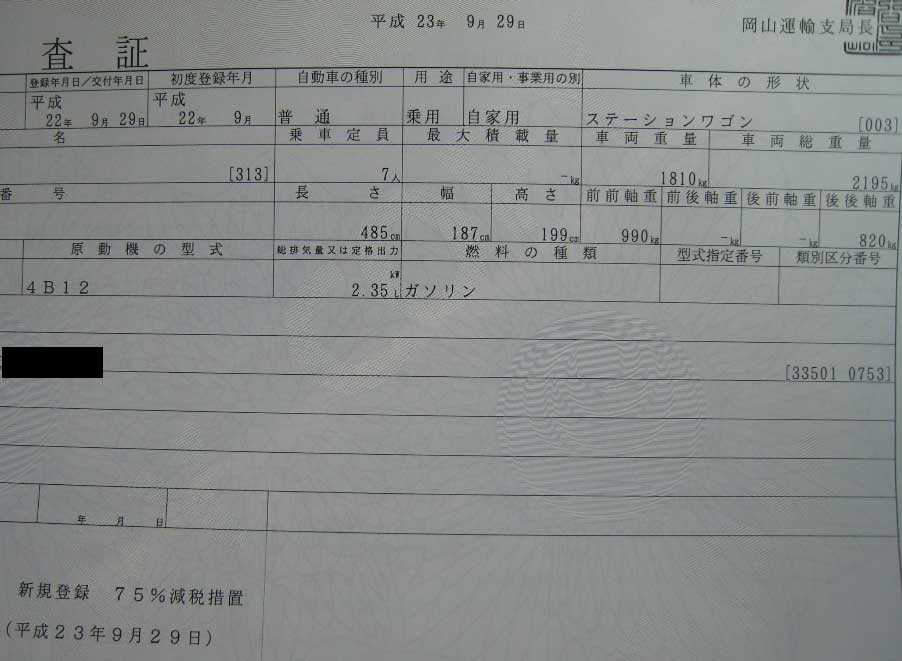 平成 23年 9月 29日
岡山運輸支局長
査 証
登録年月日／交付年月日 初度登録年月 自動車の種別 用 途 自家用・事業用の別 車 体 の 形 状
平成 22年 9月 29日 平成 22年 9月 普 通 乗用 自家用 ステーションワゴン [003]
名 乗 車 定 員 最 大 積 載 量 車 両 重 量 車 両 総 重 量
[313] 7人 －kg 1810kg 2195kg
番 号 長 さ 幅 高 さ 前前軸重 前後軸重 後前軸重 後後軸重
485cm 187cm 199cm 990kg －kg －kg 820kg
原 動 機 の 型 式 総排気量又は定格出力 燃 料 の 種 類 型式指定番号 類別区分番号
4B12 kW 2.35L ガソリン
[33501 0753]
年 月 日
新規登録 75％減税措置
(平成23年9月29日)